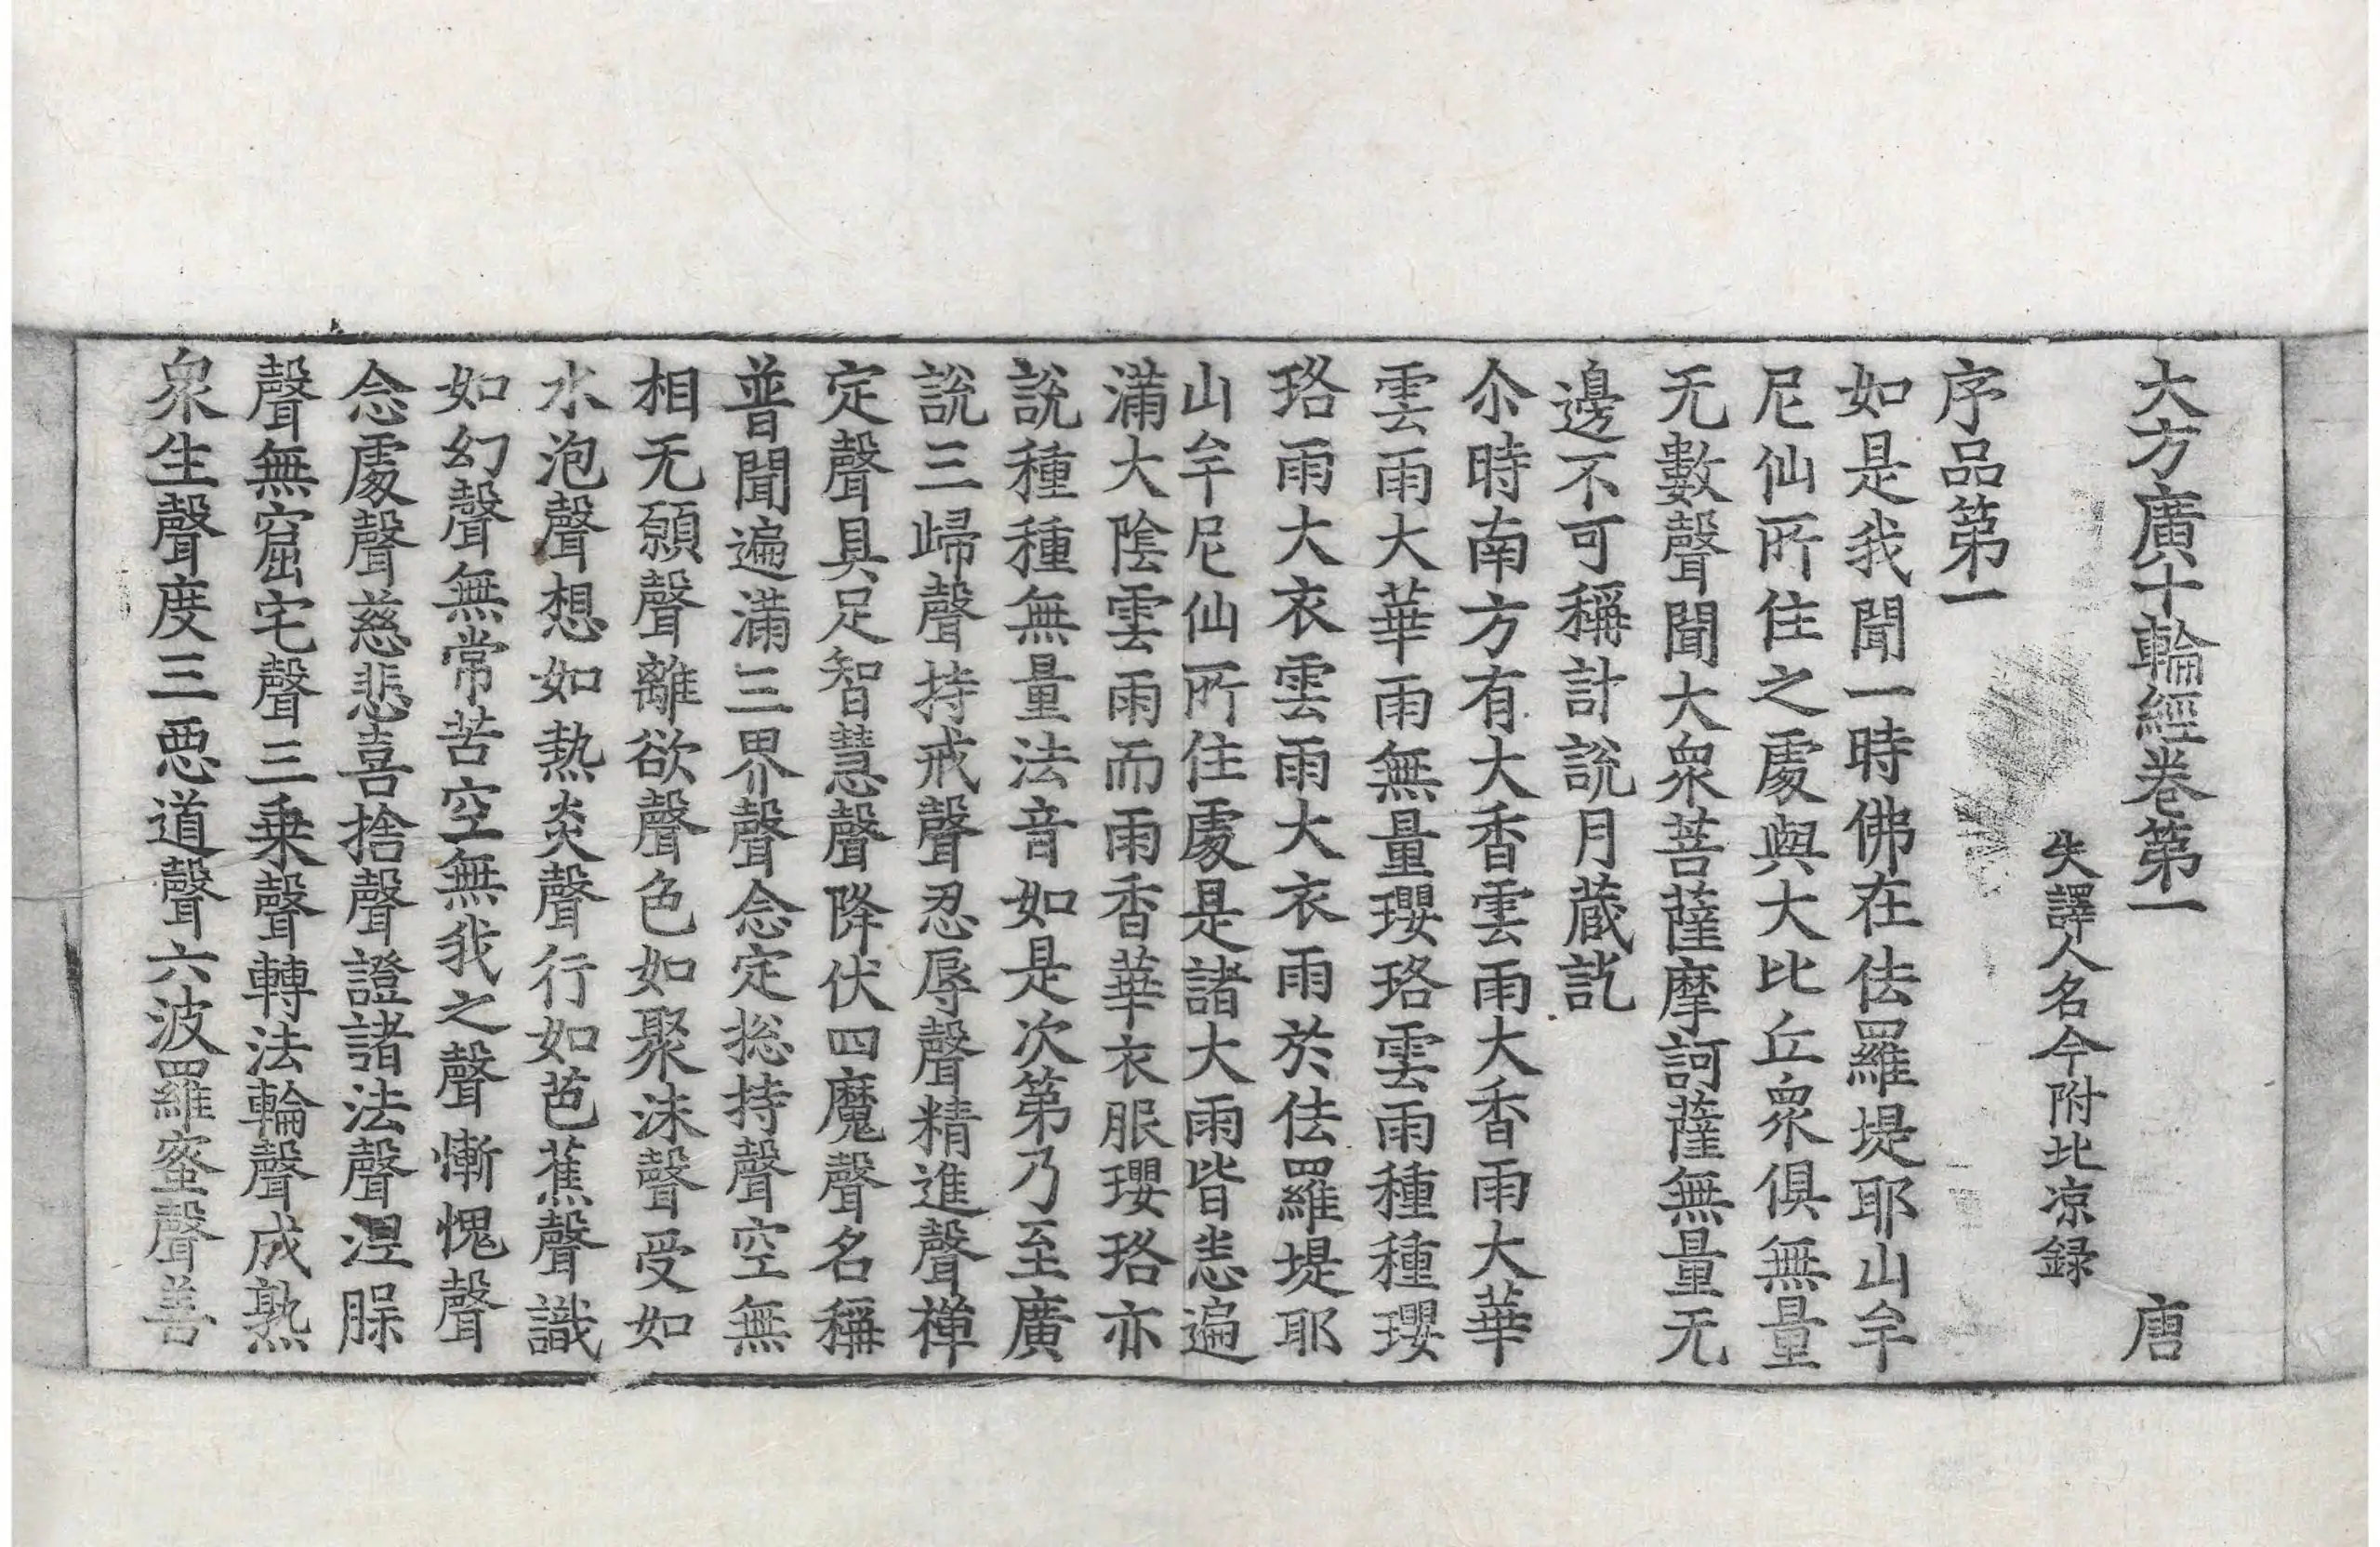 大方廣十輪經卷第一 唐
失譯人名今附北凉録
序品第一
如是我聞一時佛在佉羅堤耶山牟
尼仙所住之處與大比丘衆俱無量
无數聲聞大衆菩薩摩訶薩無量无
邊不可稱計說月蔵訖
尒時南方有大香雲雨大香雨大華
雲雨大華雨無量瓔珞雲雨種種瓔
珞雨大衣雲雨大衣雨於佉羅堤耶
山牟尼仙所住處是諸大雨皆悉遍
滿大陰雲雨而雨香華衣服瓔珞亦
說種種無量法音如是次第乃至廣
說三歸聲持戒聲忍辱聲精進聲禅
定聲具足智慧聲降伏四魔聲名稱
普聞遍滿三界聲念定捴持聲空無
相无願聲離欲聲色如聚沫聲受如
水泡聲想如热炎聲行如芭蕉聲識
如幻聲無常苦空無我之聲慚愧聲
念處聲慈悲喜捨聲證諸法聲涅脲
聲無窟宅聲三乗聲轉法輪聲成熟
衆生聲度三恶道聲六波羅蜜聲善